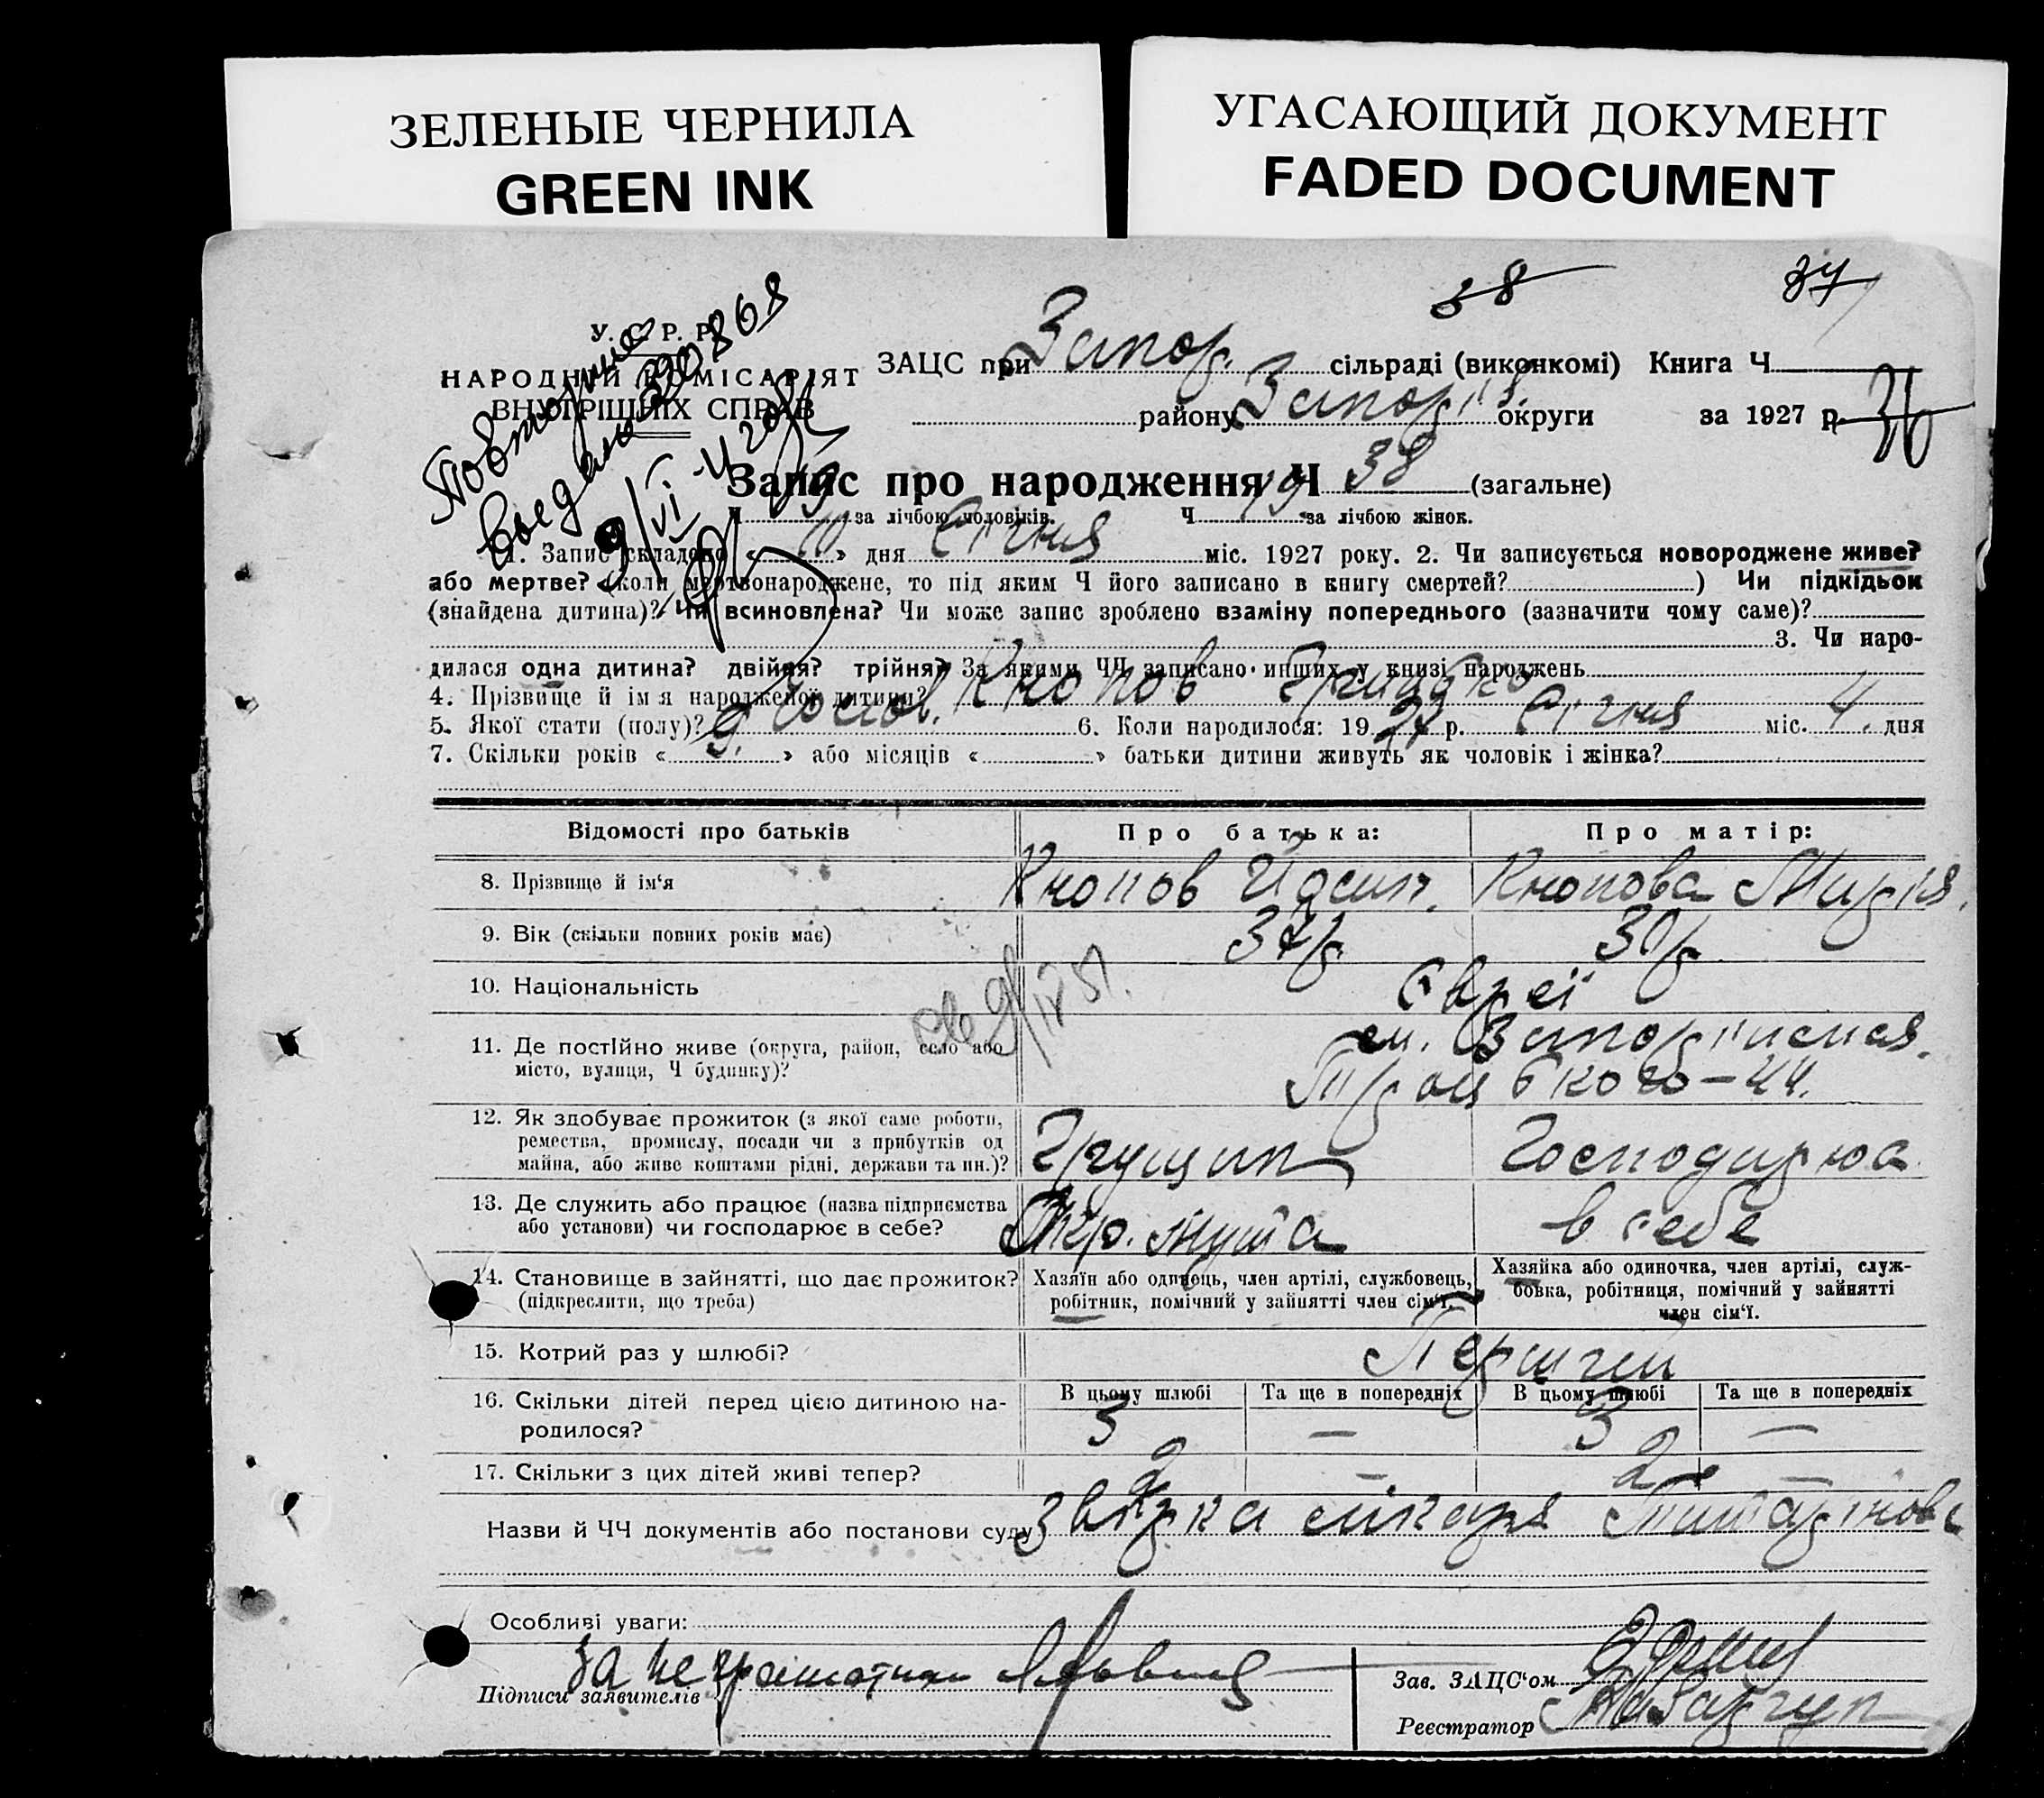 ЗЕЛЕНЫЕ ЧЕРНИЛА
GREEN INK
УГАСАЮЩИЙ ДОКУМЕНТ
FADED DOCUMENT
38 34
У. С. Р. Р.
НАРОДНІЙ КОМІСАРІЯТ
ВНУТРІШНІХ СПРАВ
ЗАЦС при Запор. сільраді (виконкомі) Книга Ч
району Запоріз. округи за 1927 р. 36
Запис про народження Ч 38 (загальне)
Ч 19 за лічбою чоловіків. Ч 19 за лічбою жінок.
1. Запис складено « 10 » дня Січня міс. 1927 року. 2. Чи записується новороджене живе?
або мертве? (коли мертвонароджене, то під яким Ч його записано в книгу смертей? ) Чи підкідьок
(знайдена дитина)? Чи всиновлена? Чи може запис зроблено взаміну попереднього (зазначити чому саме)?
3. Чи наро-
дилася одна дитина? двійня? трійня? За якими ЧЧ записано инших у книзі народжень
4. Прізвище й ім'я народженої дитини? Кнопов
5. Якої стати (полу)? Чолов. 6. Коли народилося: 19 27 р. Січня міс. 4. дня
7. Скільки років « 9. » або місяців « » батьки дитини живуть як чоловік і жінка?
Відомості про батьків Про батька: Про матір:
8. Прізвище й ім'я Кнопов Йосип. Кнопова
9. Вік (скільки повних років має) 30 р.
10. Національність Євреї
11. Де постійно живе (округа, район, село або
місто, вулиця, Ч будинку)?
м. Запоріжжя.
Троцького – 44.
12. Як здобуває прожиток (з якої саме роботи,
ремества, промислу, посади чи з прибутків од
майна, або живе коштами рідні, держави та ин.)?
Грущик Господарює
13. Де служить або працює (назва підприємства
або установи) чи господарює в себе?
в себе
14. Становище в зайнятті, що дає прожиток?
(підкреслити, що треба)
Хазяїн або одинець, член артілі, службовець,
робітник, помічний у зайнятті член сім'ї.
Хазяйка або одиночка, член артілі, служ-
бовка, робітниця, помічний у зайнятті
член сім'ї.
15. Котрий раз у шлюбі? Перший
16. Скільки дітей перед цією дитиною на-
родилося?
В цьому шлюбі Та ще в попередніх В цьому шлюбі Та ще в попередніх
3 — 3 —
17. Скільки з цих дітей живі тепер? 2 — 2 —
Назви й ЧЧ документів або постанови суду
Особливі уваги:
Підписи заявителів За неграмотних
Зав. ЗАЦС'ом
Реєстратор